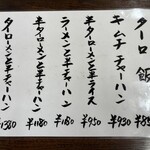 ターロ飯 ¥880
キムチチャーハン ¥930
半タイローメンと半ライス ¥930
ラーメンと半チャーハン ¥1180
半タイローメンと半チャーハン ¥1180
タイローメンと半チャーハン ¥1380